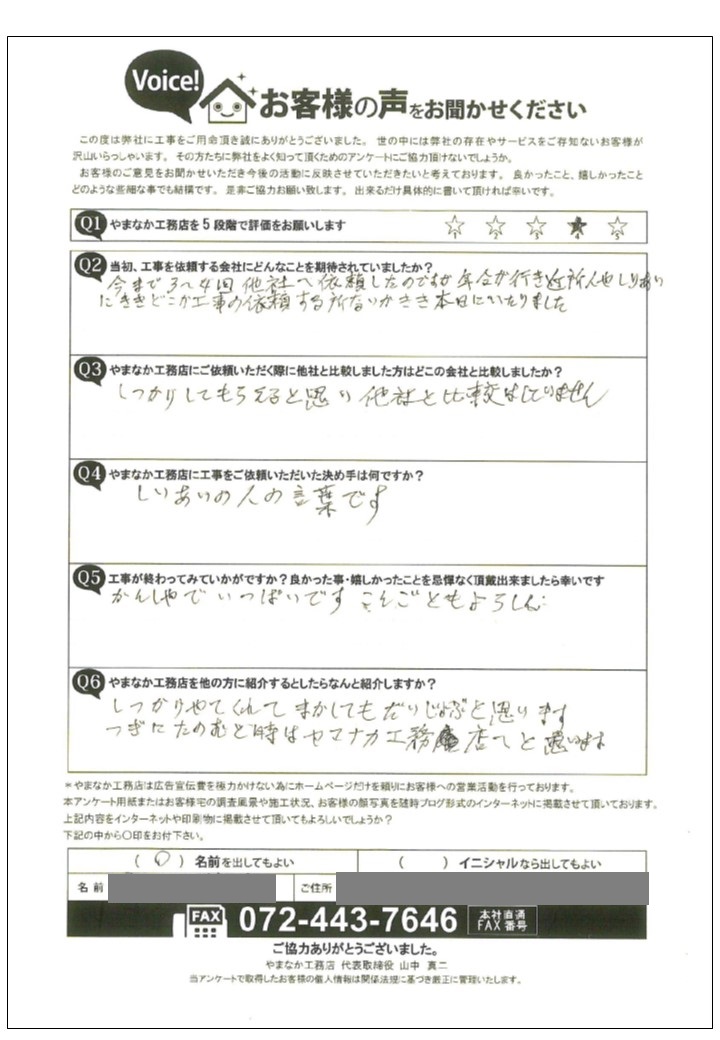 Voice!
お客様の声をお聞かせください
この度は弊社に工事をご用命頂き誠にありがとうございました。 世の中には弊社の存在やサービスをご存知ないお客様が
沢山いらっしゃいます。 その方たちに弊社をよく知って頂くためのアンケートにご協力頂けないでしょうか。
お客様のご意見をお聞かせいただき今後の活動に反映させていただきたいと考えております。 良かったこと、嬉しかったこと
どのような些細な事でも結構です。 是非ご協力お願い致します。 出来るだけ具体的に書いて頂ければ幸いです。
Q1 やまなか工務店を5段階で評価をお願いします 1 2 3 4 5
Q2 当初、工事を依頼する会社にどんなことを期待されていましたか?
今まで3~4回他社へ依頼したのですが年令が行き近所人やしりあい
にききどこか工事の依頼する所ないかきき本日にいたりました
Q3 やまなか工務店にご依頼いただく際に他社と比較しました方はどこの会社と比較しましたか?
しっかりしてもらえると思い他社と比較はしていません
Q4 やまなか工務店に工事をご依頼いただいた決め手は何ですか?
しりあいの人の言葉です
Q5 工事が終わってみていかがですか?良かった事・嬉しかったことを忌憚なく頂戴出来ましたら幸いです
かんしゃでいっぱいです こんごともよろしく
Q6 やまなか工務店を他の方に紹介するとしたらなんと紹介しますか?
しっかりやてくれて まかしても だいじょぶと思います
つぎにたのむと時はヤマナカ工務店へと思います
*やまなか工務店は広告宣伝費を極力かけない為にホームページだけを頼りにお客様への営業活動を行っております。
本アンケート用紙またはお客様宅の調査風景や施工状況、お客様の顔写真を随時ブログ形式のインターネットに掲載させて頂いております。
上記内容をインターネットや印刷物に掲載させて頂いてもよろしいでしょうか?
下記の中から〇印をお付下さい。
( ○ ) 名前を出してもよい ( ) イニシャルなら出してもよい
名前 ご住所
FAX 072-443-7646 本社直通 FAX番号
ご協力ありがとうございました。
やまなか工務店 代表取締役 山中 真二
当アンケートで取得したお客様の個人情報は関係法規に基づき厳正に管理いたします。